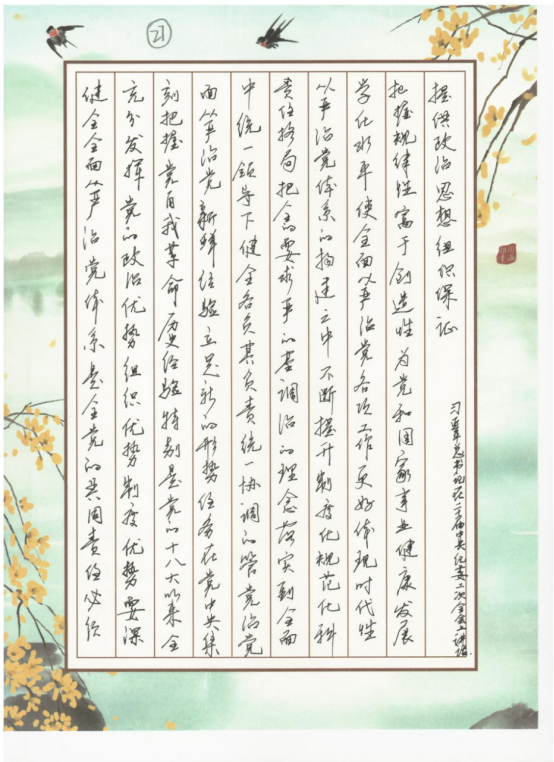 健全全面从严治党体系是全党的共同责任必须
充分发挥党的政治优势组织优势制度优势要深
刻把握党自我革命历史经验特别是党的十八大以来全
面从严治党新鲜经验立足新的形势任务在党中央集
中统一领导下健全各负其责统一协调的管党治党
责任格局把全的要求严的基调治的理念落实到全面
从严治党体系的构建之中不断提升制度化规范化科
学化水平使全面从严治党各项工作更好体现时代性
把握规律性富于创造性为党和国家事业健康发展
提供政治思想组织保证
习近平总书记在二十届中央纪委二次全会上讲话